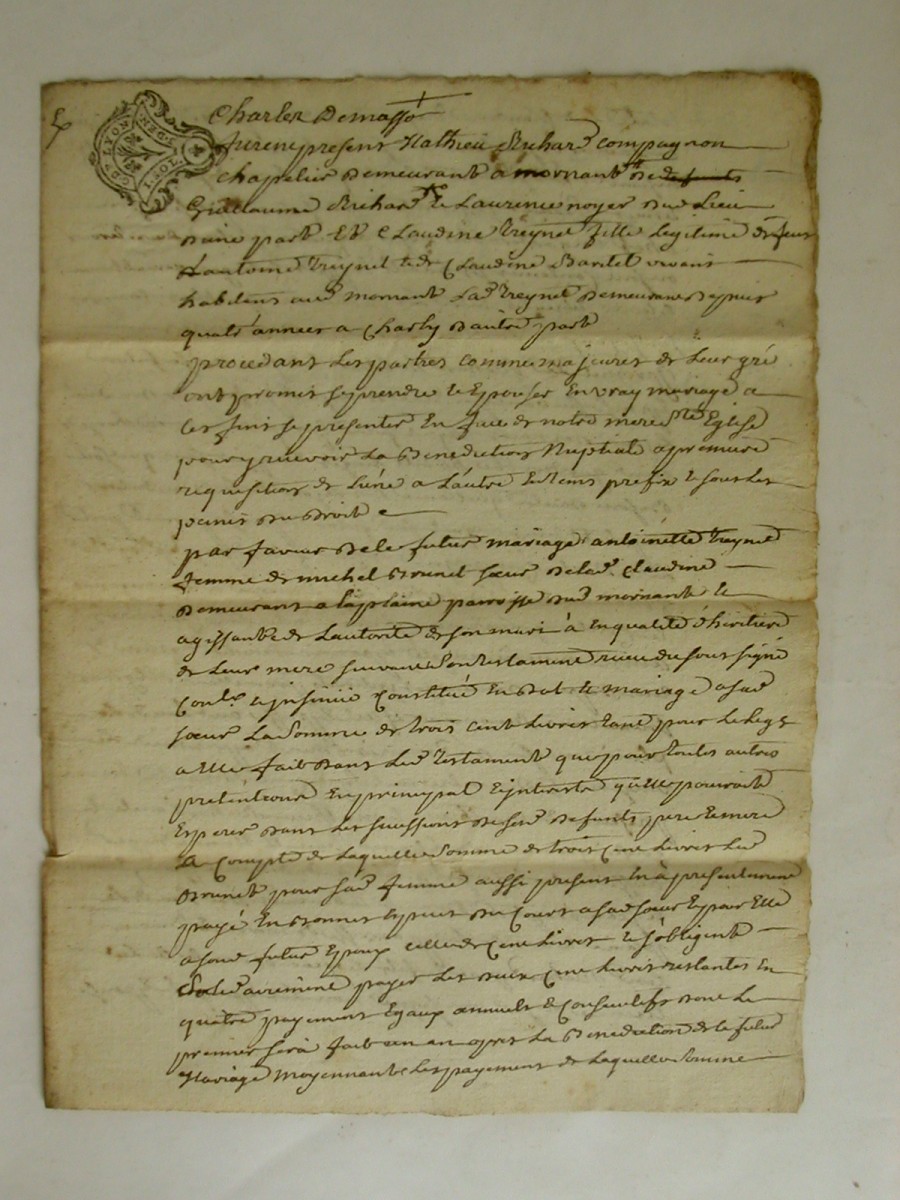 GEN. DE LYON
1. SOL
Charles Demasso
furent present Mathieu Richard compagnon
chapelier demeurant a mornant fils de defunts
Guillaume Richard et Laurence noyer dud. Lieu
d'une part Et Claudine treynet fille Legitime de feux
antoine treynet et de Claudine Bardel vivans
habitens aud. mornant Lad. treynet demeurant depuis
quatre annees a Charly d'autre part
procedant Les parties comme majeures de Leur gré
ont promis se prendre et Epouser En vray mariage a
ces fins se presenter En face de notre mere Ste Eglise
pour y recevoir La Benediction Nuptiale a premiere
requisition de L'une a L'autre En tems prefix et sous Les
peines du droit
par faveur de ce futur mariage antoinette treynet
femme de michel Brunet soeur de lad. Claudine
demeurant a La plaine paroisse dud. mornant et
agissante de L'autorité de son mari a En qualité d'héritiere
de Leur mere suivant son testament reçu du sous signé
Conl. et insinué Constitué En dot et mariage a sad.
soeur La somme de trois cent Livres tant pour Le Legs
a Elle fait dans Led. testament que pour toutes autres
pretentions En principal Et intherets qu'elle pouroit
Esperer dans Les sucessions de ses d. defunts pere Et mere
A Compte de Laquelle somme de trois Cent Livres Led.
Brunet pour sad. femme aussi present a presentement
payé En Bonnes Especes du Cours a sad. soeur Et pour Elle
a son d. futur Epoux celle de Cent Livres et s'obligent
Solidairement payer Les deux Cent Livres restantes En
quatre payement Egaux annuels et Consecutifs dont Le
premier sera fait un an apres La Benediction de ce futur
Mariage Moyennant Les payement de Laquelle somme